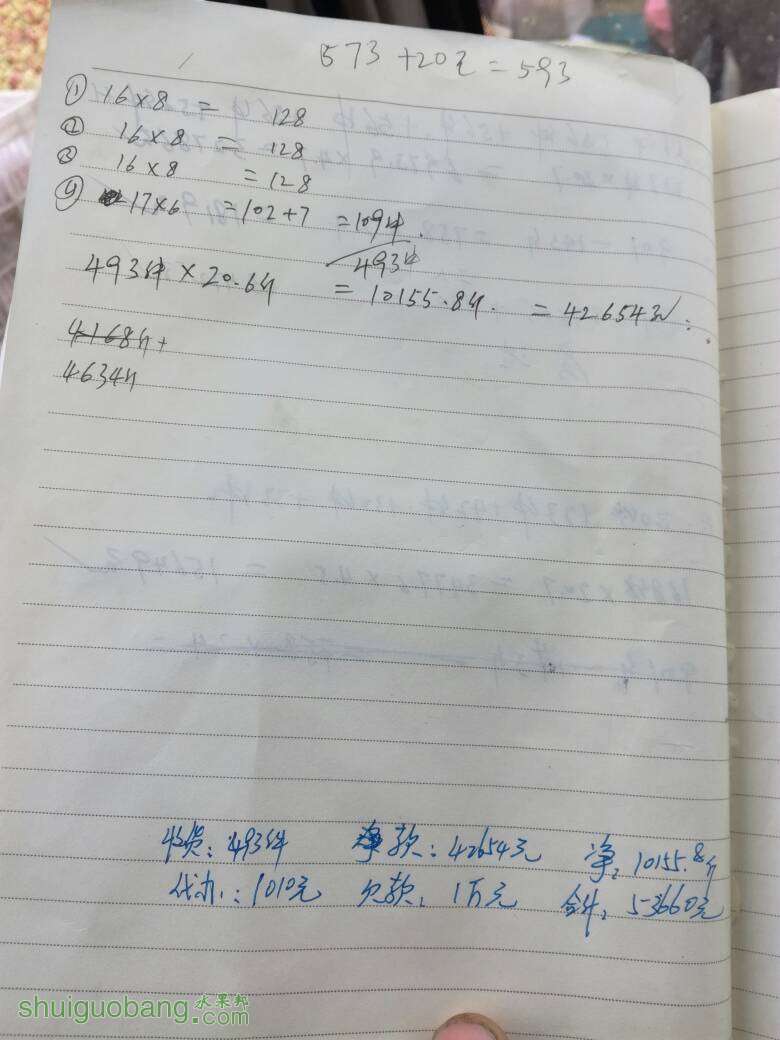 573+20元=593
① 16×8 = 128
② 16×8 = 128
③ 16×8 =128
④ 17×6 =102+7 =109件.
493件
493件×20.6斤 =10155.8斤. =42654元
4168斤+
4634斤
收货:493件 净款:42654元 净:10155.8斤
代办:1010元 欠款:1万元 合计:53660元
水果邦
shuiguobang.com